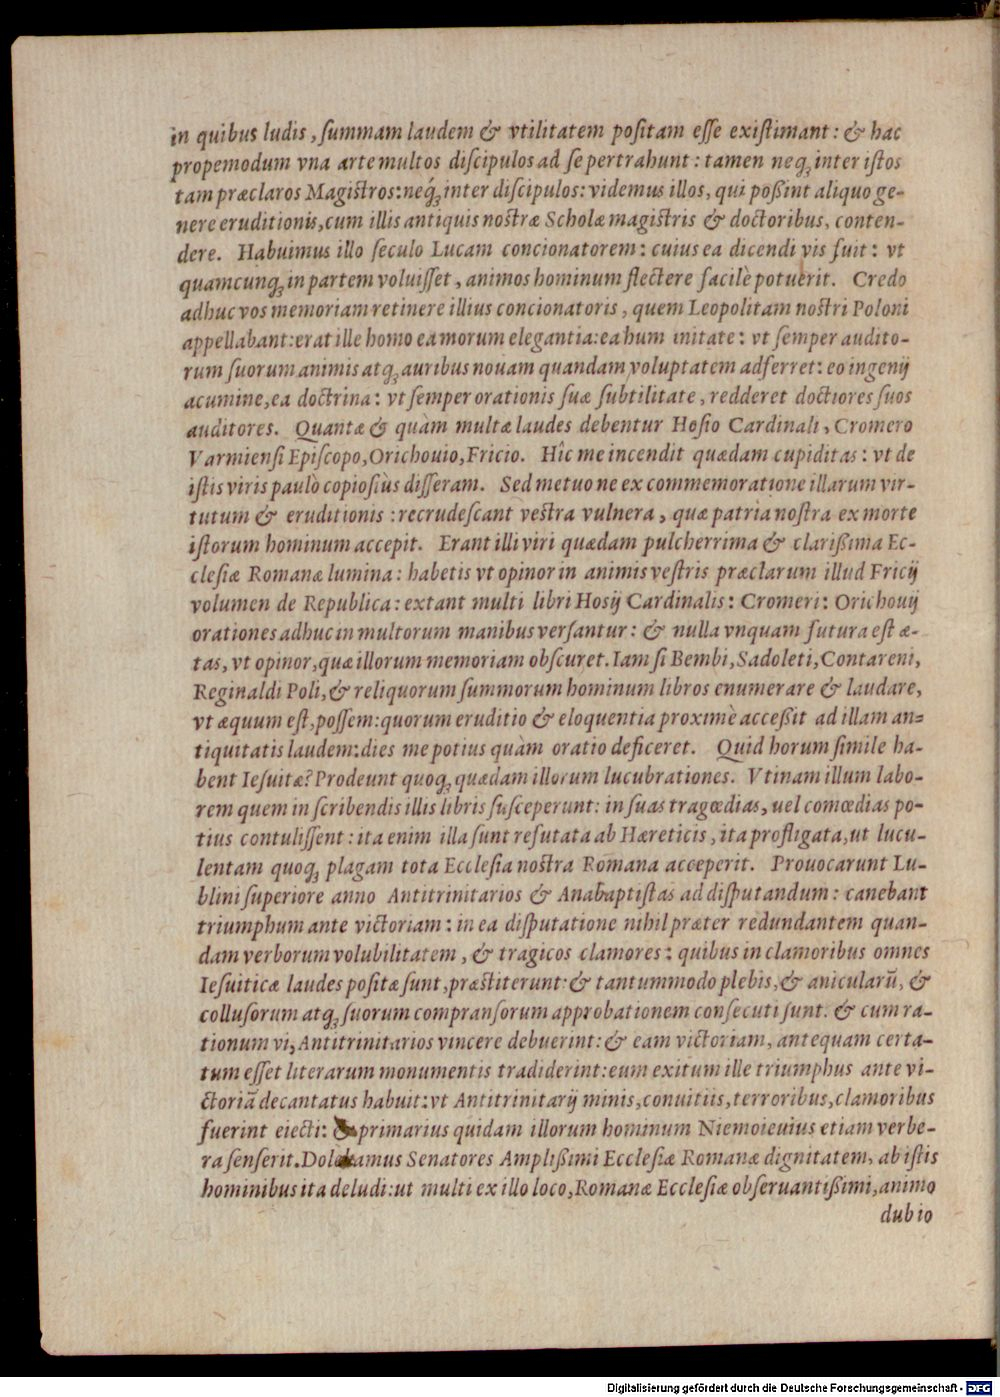 in quibus ludis, ſummam laudem & vtilitatem poſitam eſſe exiſtimant: & hac
propemodum vna arte multos diſcipulos ad ſe pertrahunt: tamen neqꝫ inter iſtos
tam præclaros Magiſtros: neq́ꝫ inter diſcipulos: videmus illos, qui poßint aliquo ge-
nere eruditionis, cum illis antiquis noſtræ Scholæ magiſtris & doctoribus, conten-
dere. Habuimus illo ſeculo Lucam concionatorem: cuius ea dicendi vis fuit: vt
quamcunqꝫ in partem voluiſſet, animos hominum flectere facilè potuerit. Credo
adhuc vos memoriam retinere illius concionatoris, quem Leopolitam noſtri Poloni
appellabant: erat ille homo ea morum elegantia: ea hum initate: vt ſemper audito-
rum ſuorum animis atqꝫ auribus nouam quandam voluptatem adferret: eo ingenij
acumine, ea doctrina: vt ſemper orationis ſuæ ſubtilitate, redderet doctiores ſuos
auditores. Quantæ & quàm multæ laudes debentur Hoſio Cardinali, Cromero
Varmienſi Epiſcopo, Orichouio, Fricio. Hîc me incendit quædam cupiditas: vt de
iſtis viris paulò copioſiùs diſſeram. Sed metuo ne ex commemoratione illarum vir-
tutum & eruditionis: recrudeſcant veſtra vulnera, quæ patria noſtra ex morte
iſtorum hominum accepit. Erant illi viri quædam pulcherrima & clarißima Ec-
cleſiæ Romanæ lumina: habetis vt opinor in animis veſtris præclarum illud Fricij
volumen de Republica: extant multi libri Hosij Cardinalis: Cromeri: Orichouij
orationes adhuc in multorum manibus verſantur: & nulla vnquam futura eſt æ-
tas, vt opinor, quæ illorum memoriam obſcuret. Iam ſi Bembi, Sadoleti, Contareni,
Reginaldi Poli, & reliquorum ſummorum hominum libros enumerare & laudare,
vt æquum eſt, poſſem: quorum eruditio & eloquentia proximè acceßit ad illam an-
tiquitatis laudem: dies me potius quàm oratio deficeret. Quid horum ſimile ha-
bent Ieſuitæ? Prodeunt quoqꝫ quædam illorum lucubrationes. Vtinam illum labo-
rem quem in ſcribendis illis libris ſuſceperunt: in ſuas tragœdias, uel comœdias po-
tius contuliſſent: ita enim illa ſunt refutata ab Hæreticis, ita profligata, ut lucu-
lentam quoqꝫ plagam tota Eccleſia noſtra Romana acceperit. Prouocarunt Lu-
blini ſuperiore anno Antitrinitarios & Anabaptiſtas ad diſputandum: canebant
triumphum ante victoriam: in ea diſputatione nihil præter redundantem quan-
dam verborum volubilitatem, & tragicos clamores: quibus in clamoribus omnes
Ieſuiticæ laudes poſitæ ſunt, præſtiterunt: & tantummodo plebis, & anicularũ, &
colluſorum atqꝫ ſuorum compranſorum approbationem conſecuti ſunt. & cum ra-
tionum vi, Antitrinitarios vincere debuerint: & eam victoriam, antequam certa-
tum eſſet literarum monumentis tradiderint: eum exitum ille triumphus ante vi-
ctoriã decantatus habuit: vt Antitrinitarij minis, conuitiis, terroribus, clamoribus
fuerint eiecti: & primarius quidam illorum hominum Niemoieuius etiam verbe-
ra ſenſerit. Doleamus Senatores Amplißimi Eccleſiæ Romanæ dignitatem, ab iſtis
hominibus ita deludi: ut multi ex illo loco, Romanæ Eccleſiæ obſeruantißimi, animo
dubio
Digitalisierung gefördert durch die Deutsche Forschungsgemeinschaft - DFG